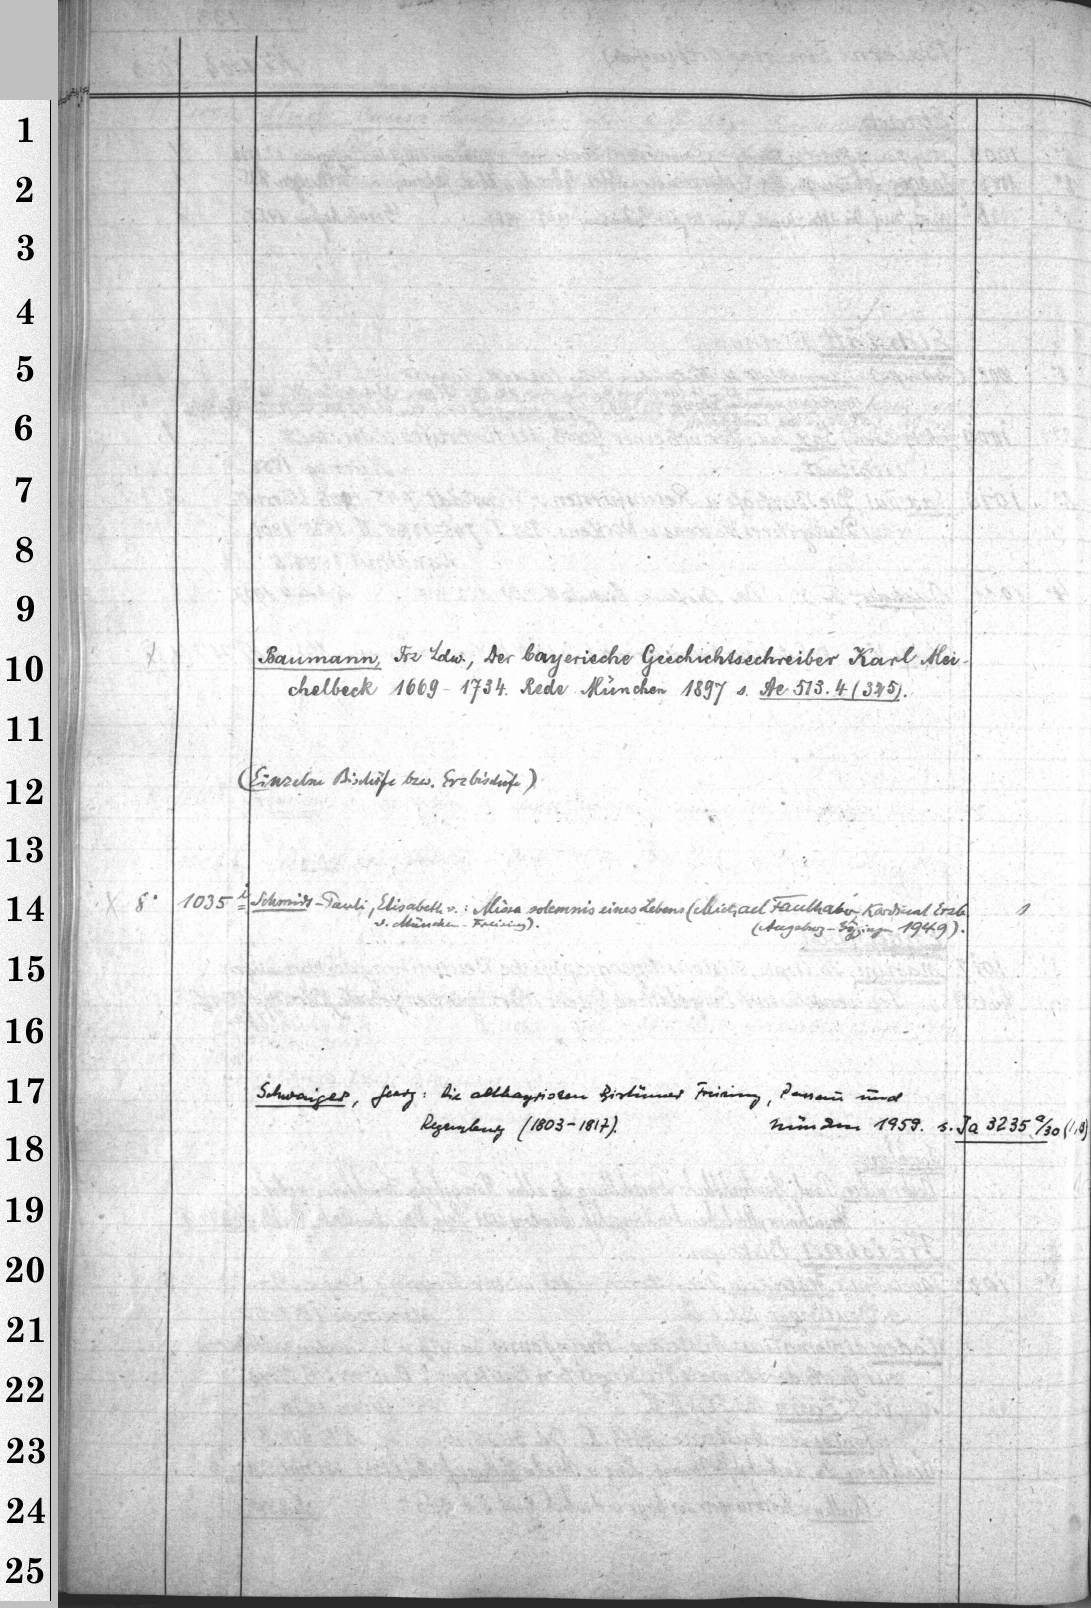 1
2
3
4
5
6
7
8
9
10
11
12
13
14
15
16
17
18
19
20
21
22
23
24
25
x Baumann, Frz Ldw., Der bayerische Geschichtsschreiber Karl Mei-
chelbeck 1669-1734. Rede München 1897 s. Ae 513.4 (325).
(Einzelne Bischöfe bzw. Erzbischöfe)
x 8° 1035 i Schmidt-Pauli, Elisabeth v.: Missa solemnis eines Lebens (Michael Faulhaber Kardinal Erzb. 1
v. München-Freising). (Augsburg-Göggingen 1949).
Schwaiger, Georg: Die altbayrischen Bistümer Freising, Passau und
Regensburg (1803-1817). München 1959. s. Ja 3235 a/30 (1,8)